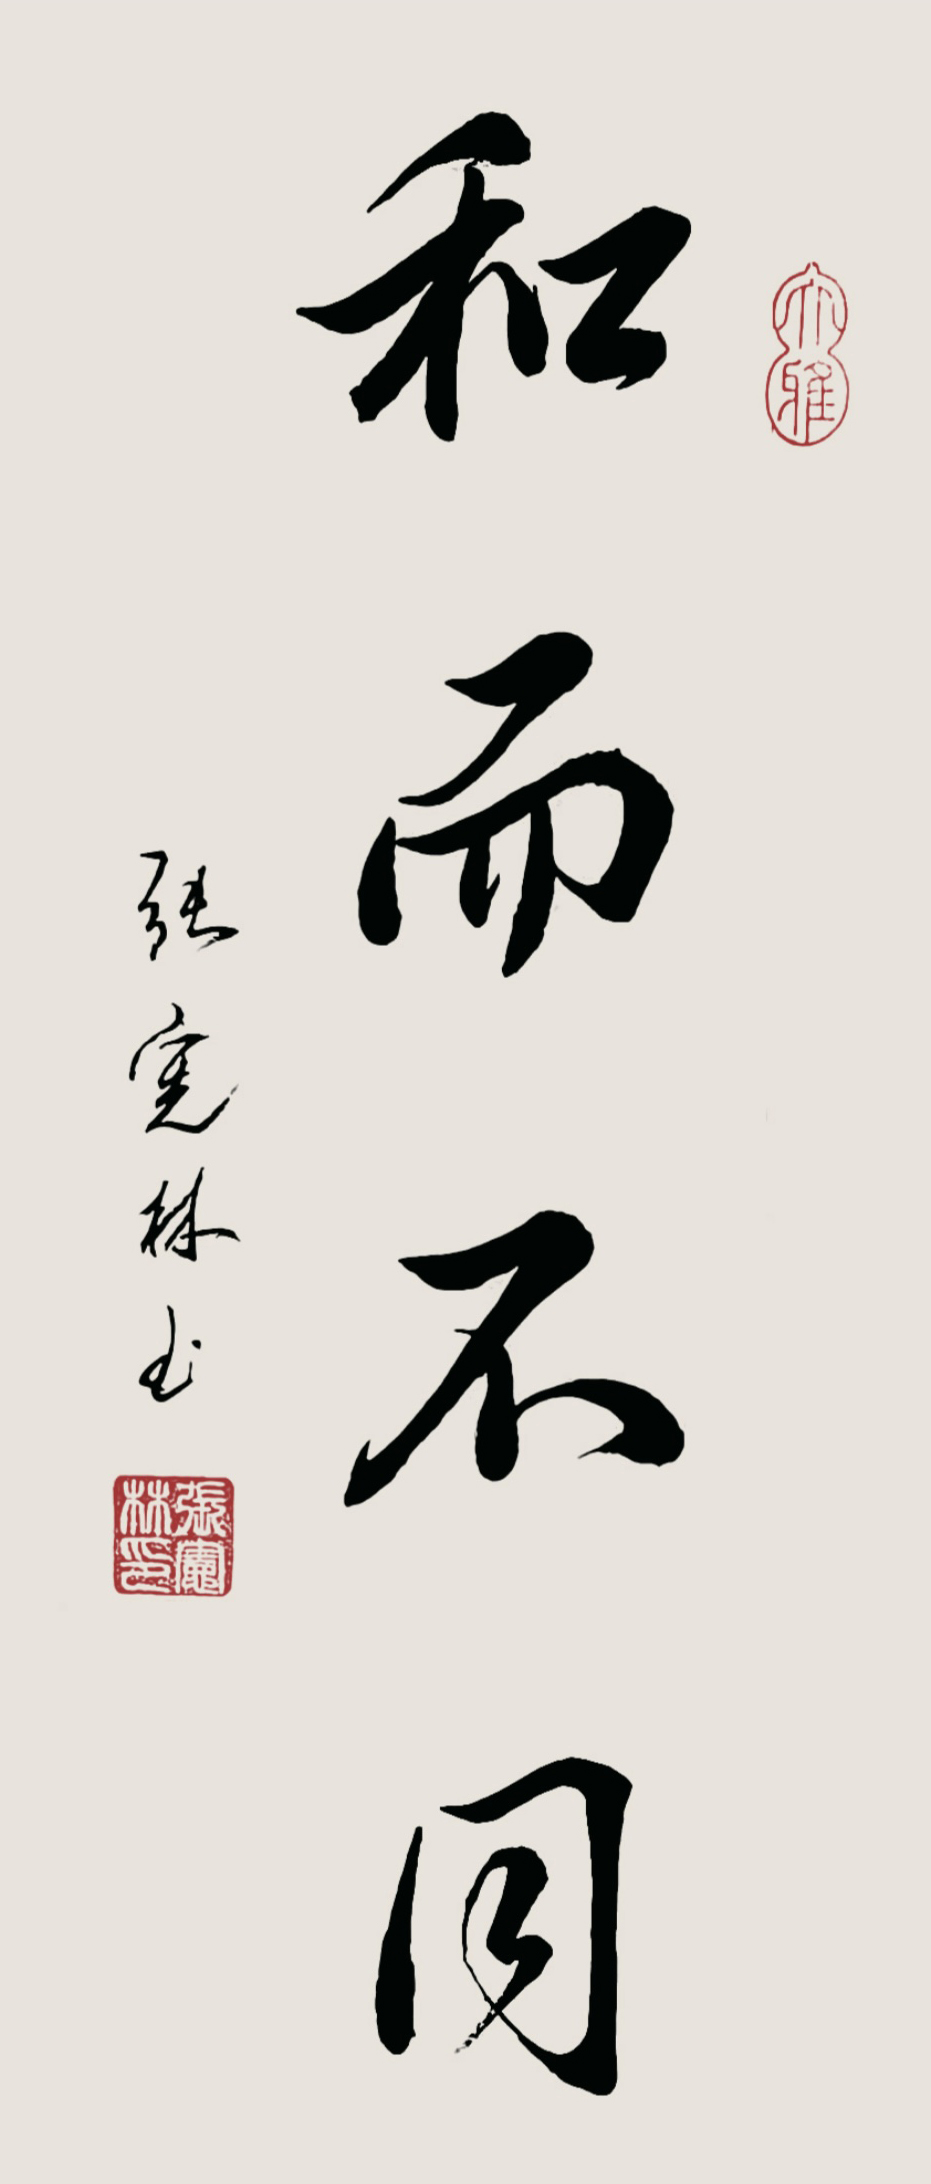 大雅
和而不同
张宪林书
張憲林印